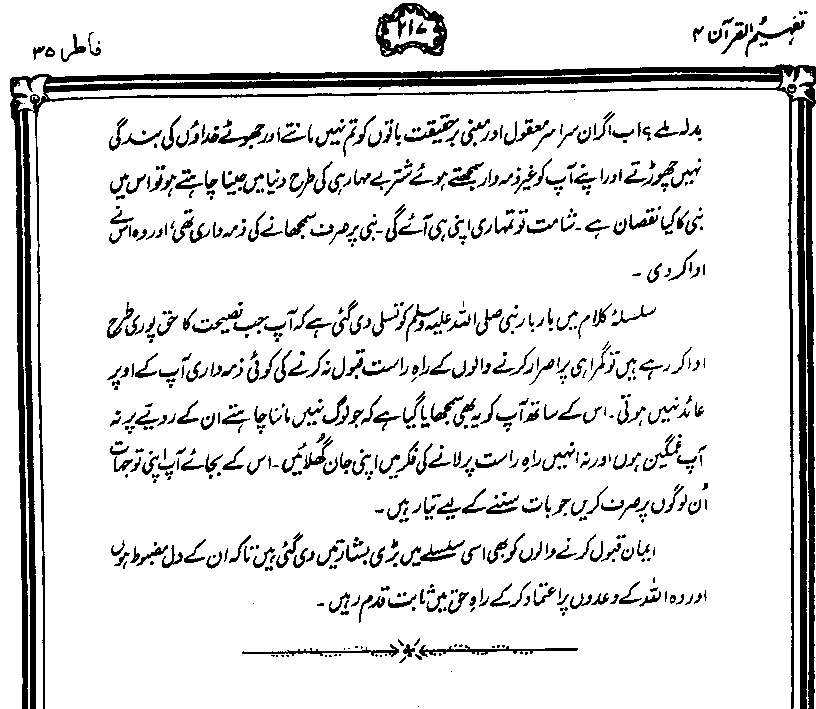 تفہیم القرآن ۴
۲۱۷
فاطر ۳۵
بدلہ ملے؟ اب اگر ان سراسر معقول اور مبنی برحقیقت باتوں کو تم نہیں مانتے اور جھوٹے خداؤں کی بندگی
نہیں چھوڑتے اور اپنے آپ کو غیر ذمہ دار سمجھتے ہوئے شتر بے مہار ہی کی طرح دنیا میں جینا چاہتے ہو تو اس میں
نبی کا کیا نقصان ہے۔ شامت تو تمہاری اپنی ہی آئے گی۔ نبی پر صرف سمجھانے کی ذمہ داری تھی، اور وہ اس نے
ادا کر دی۔
سلسلۂ کلام میں بار بار نبی صلی اللہ علیہ وسلم کو تسلی دی گئی ہے کہ آپ جب نصیحت کا حق پوری طرح
ادا کر رہے ہیں تو گمراہی پر اصرار کرنے والوں کے راہِ راست قبول نہ کرنے کی کوئی ذمہ داری آپ کے اوپر
عائد نہیں ہوتی۔ اس کے ساتھ آپ کو یہ بھی سمجھایا گیا ہے کہ جو لوگ نہیں ماننا چاہتے ان کے رویّے پر نہ
آپ غمگین ہوں اور نہ انہیں راہِ راست پر لانے کی فکر میں اپنی جان گھُلائیں۔ اس کے بجائے آپ اپنی توجہات
اُن لوگوں پر صرف کریں جو بات سننے کے لیے تیار ہیں۔
ایمان قبول کرنے والوں کو بھی اسی سلسلے میں بڑی بشارتیں دی گئی ہیں تاکہ ان کے دل مضبوط ہوں
اور وہ اللہ کے وعدوں پر اعتماد کر کے راہِ حق میں ثابت قدم رہیں۔